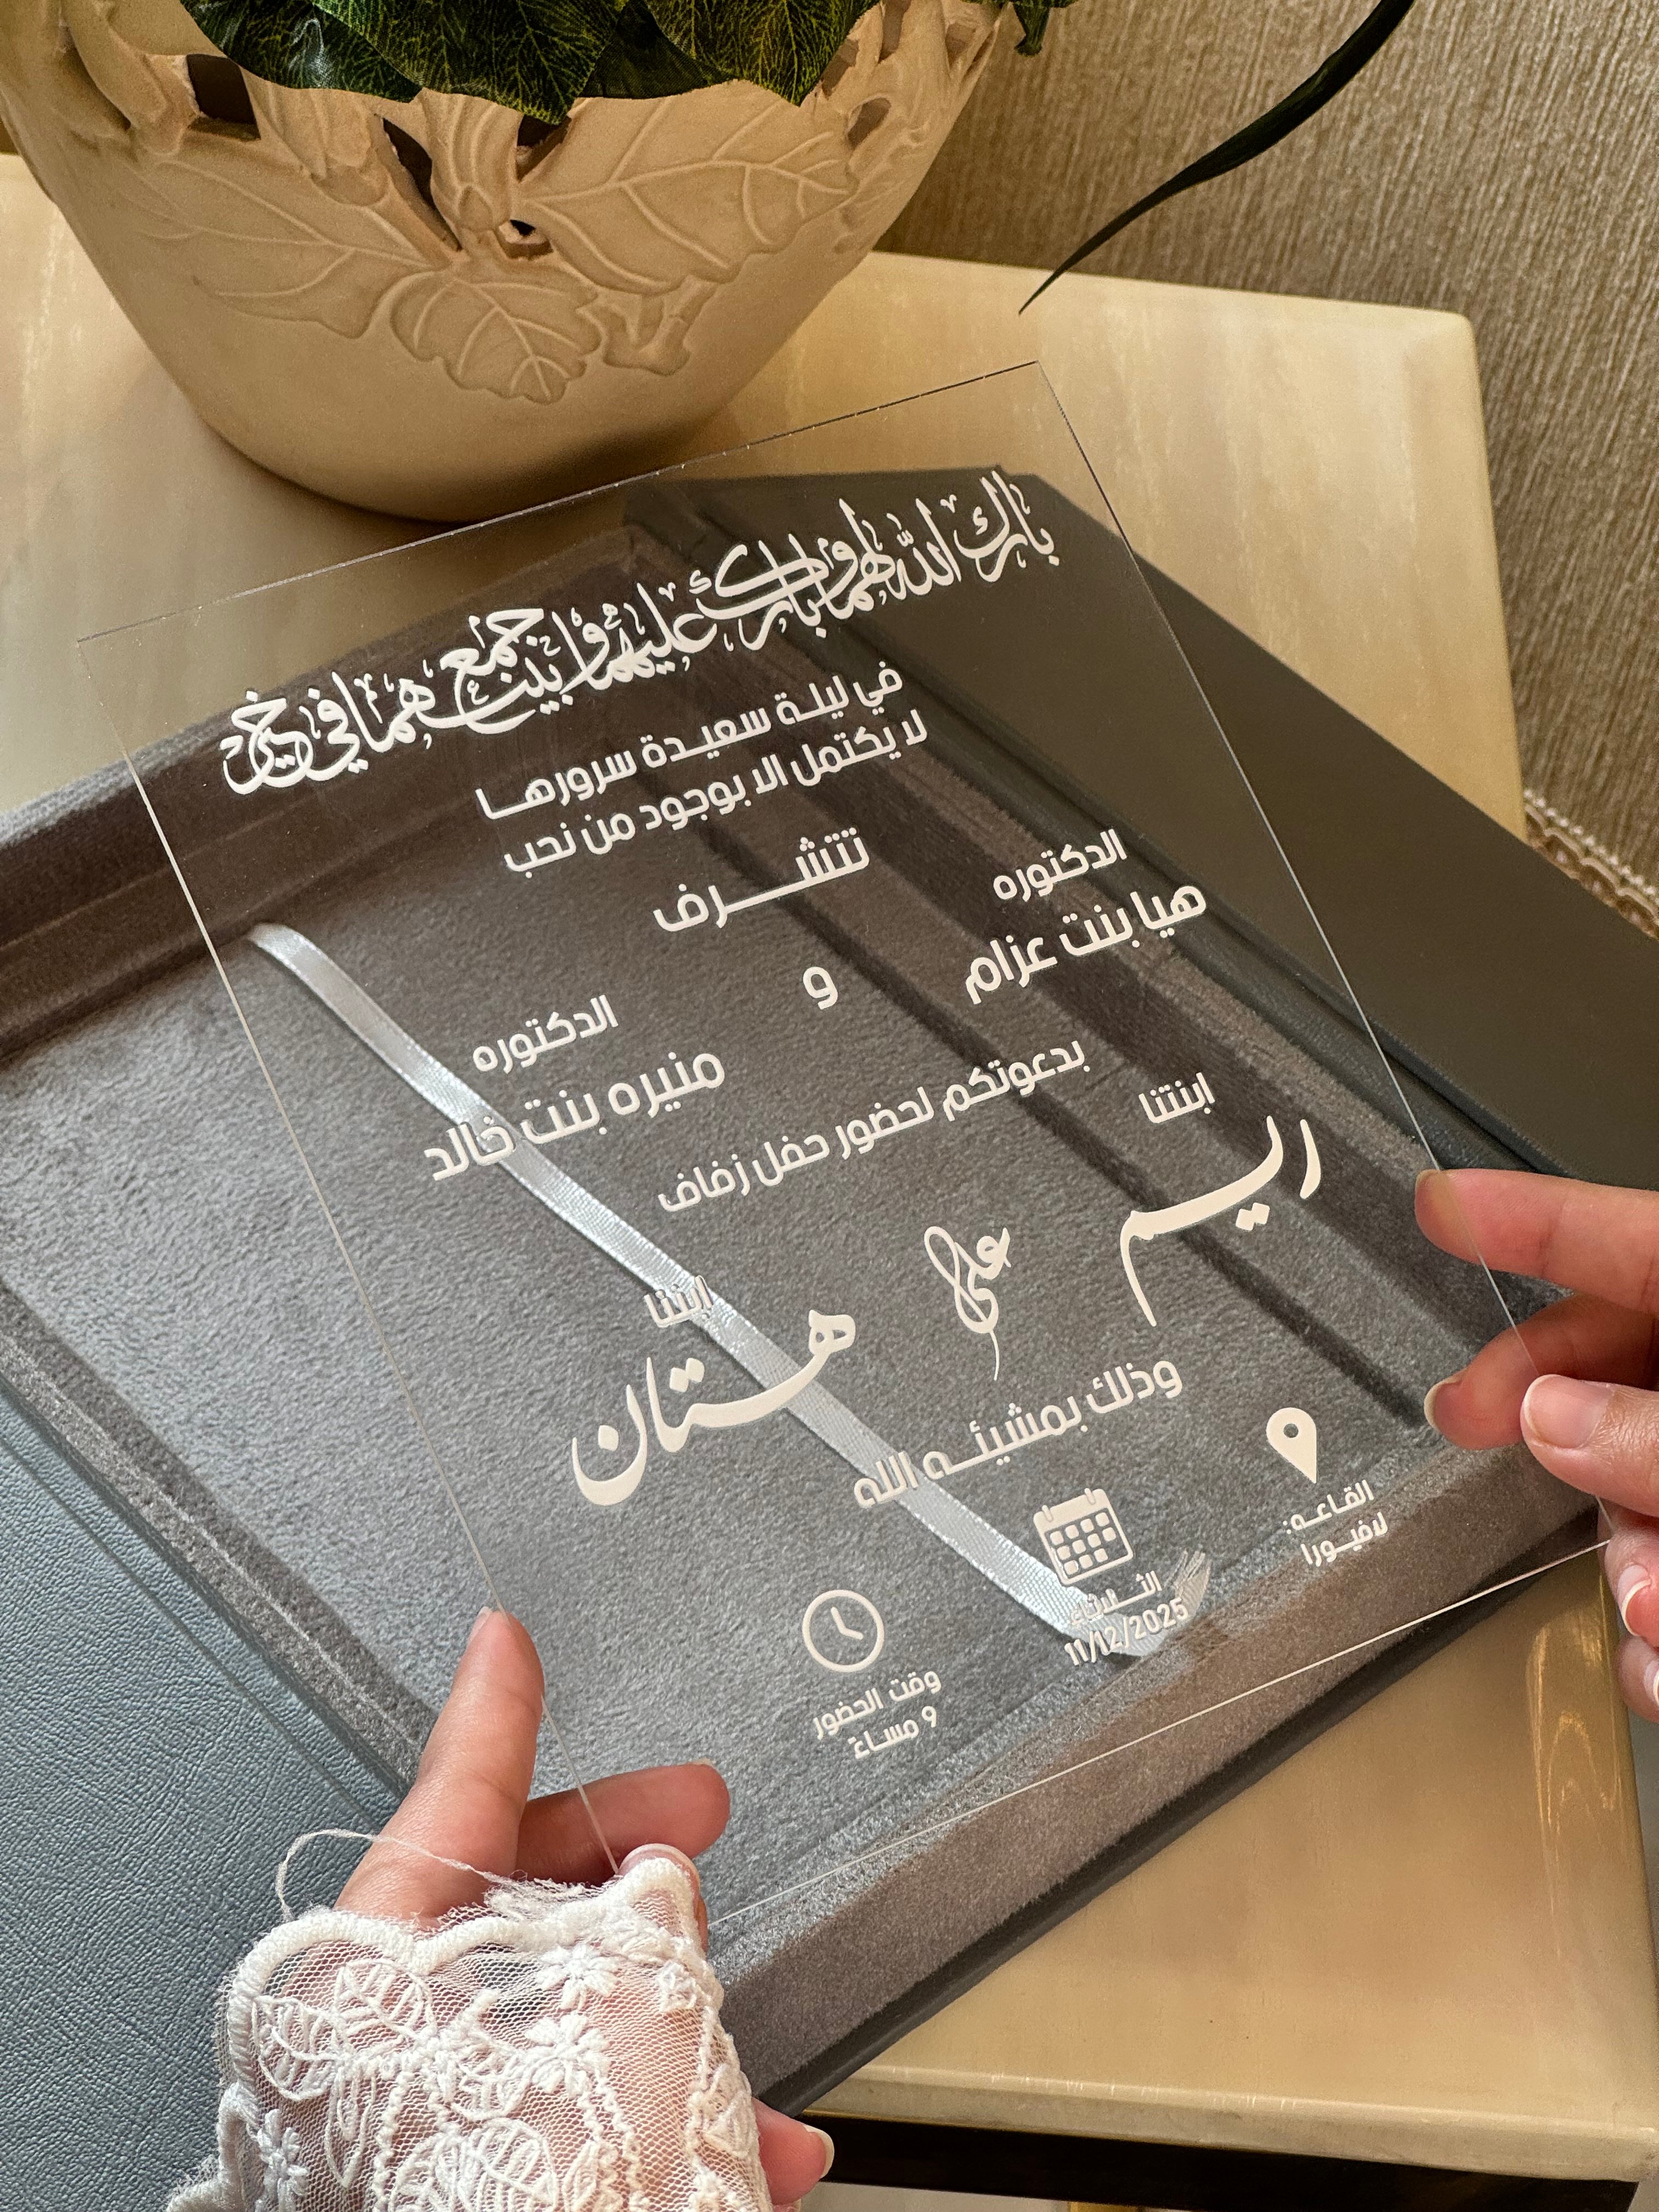 بارك الله لهما وبارك عليهما وجمع بينهما في خير
في ليلة سعيدة سرورها
لا يكتمل الا بوجود من نحب
نتشرف
الدكتوره
هيا بنت عزام
و
الدكتوره
منيره بنت خالد
بدعوتكم لحضور حفل زفاف
ابنتنا
ريم
على
إبننا
هتان
وذلك بمشيئه الله
القاعه:
لافيورا
الثلاثاء
11/12/2025
وقت الحضور
9 مساءً